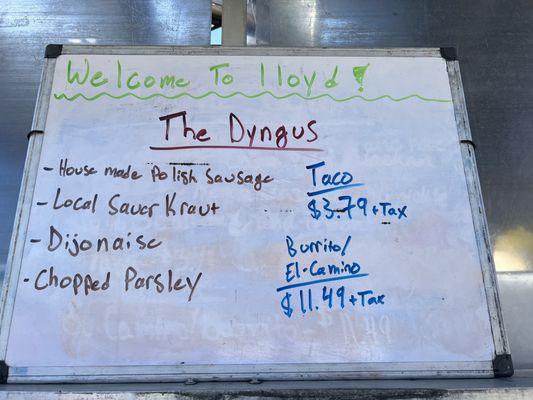 Welcome To lloyd!
The Dyngus
- House made Polish Sausage
- Local Sauer Kraut
- Dijonaise
- Chopped Parsley
Taco
$3.79 + Tax
Burrito/
El-Camino
$11.49 + Tax